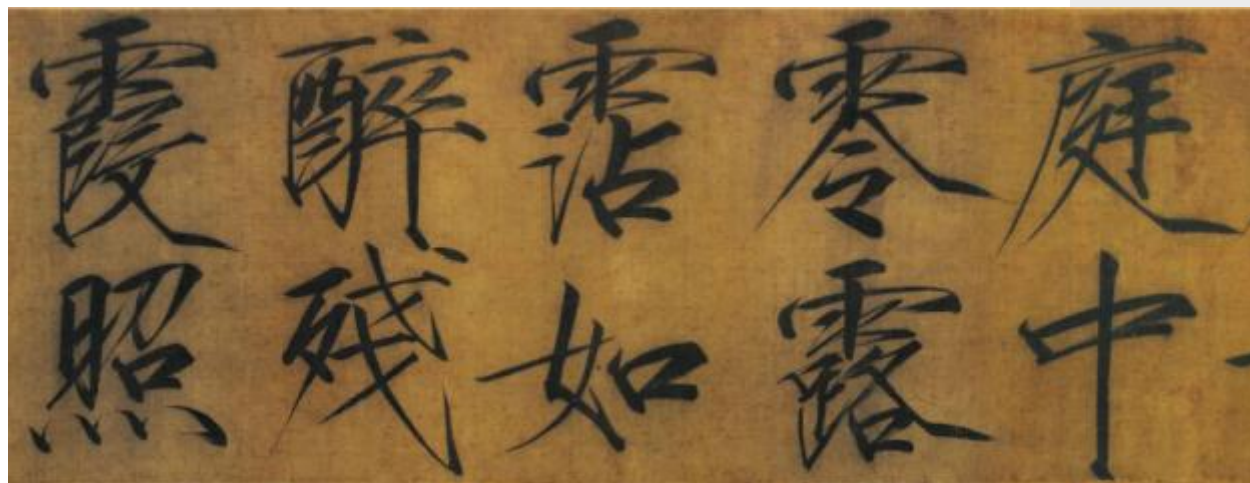 庭中
零露
霑如
醉殘
霞照